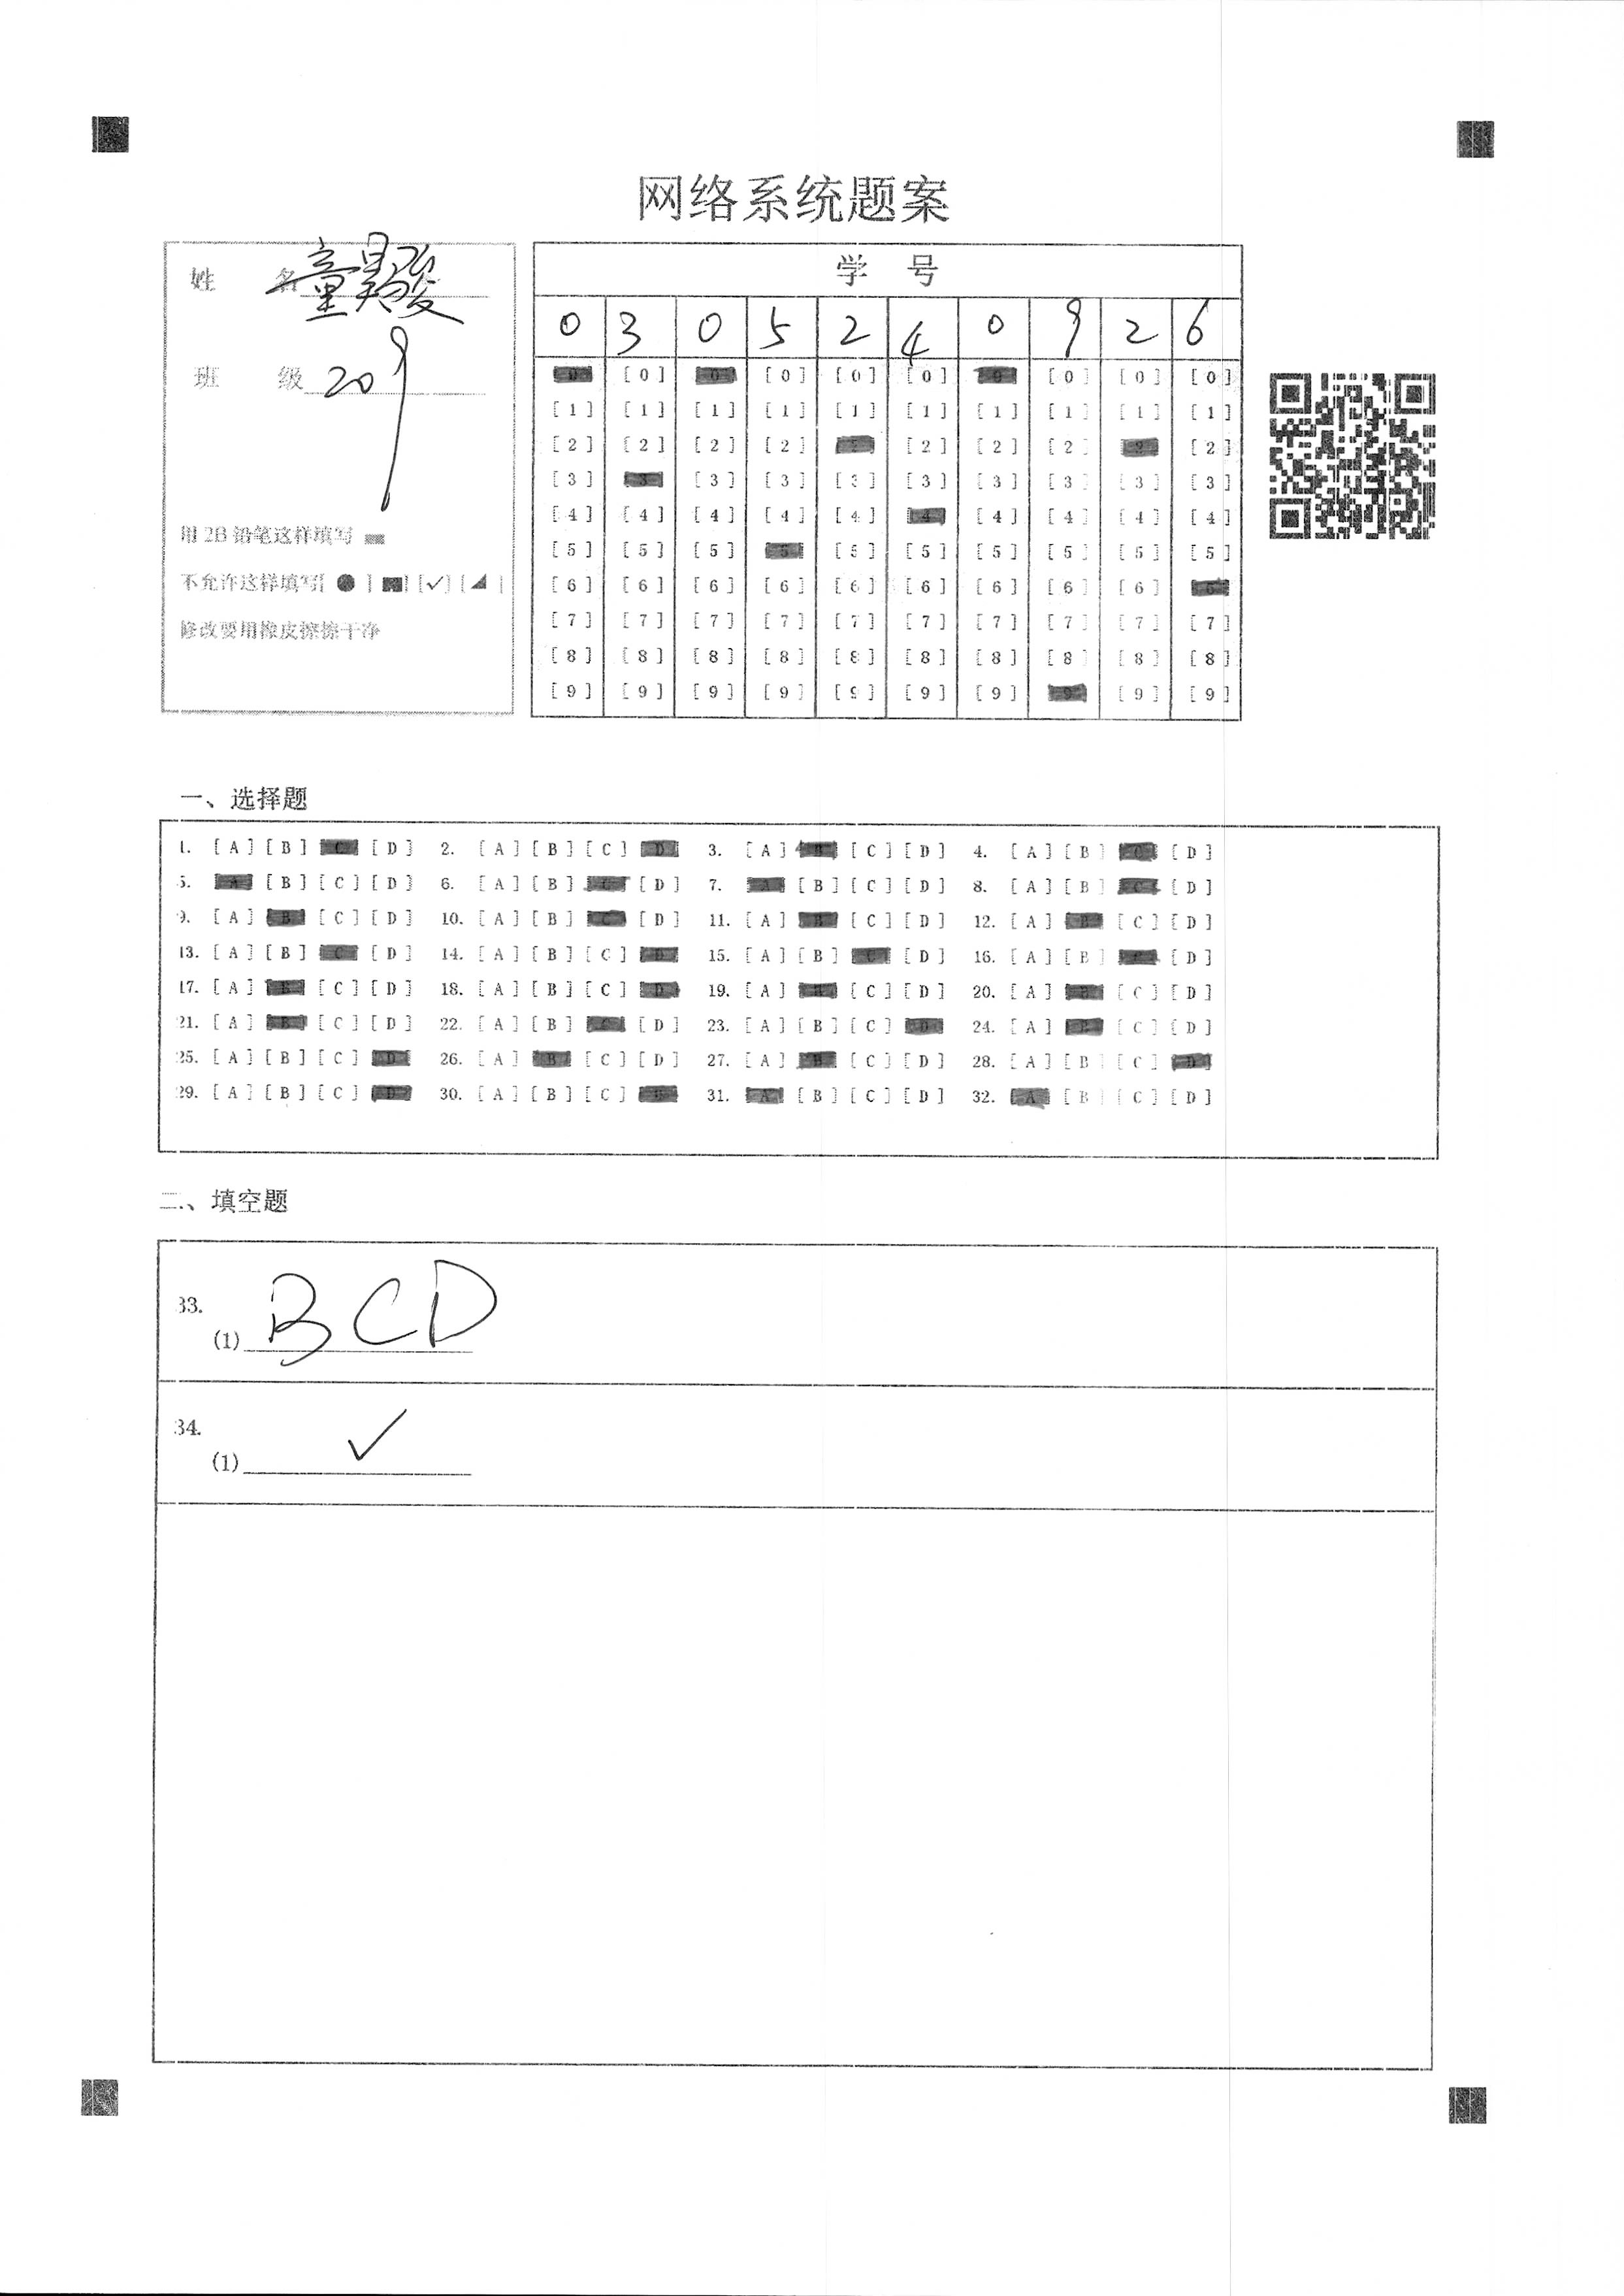 网络系统题案
姓 名
班 级 209
用2B铅笔这样填写
不允许这样填写[ ● ] [■] [✓] [◢ ]
修改要用橡皮擦擦干净
学 号
0 3 0 5 2 4 0 9 2 6
[0] [0] [0] [0] [0] [0] [0] [0] [0] [0]
[1] [1] [1] [1] [1] [1] [1] [1] [1] [1]
[2] [2] [2] [2] [2] [2] [2] [2] [2] [2]
[3] [3] [3] [3] [3] [3] [3] [3] [3] [3]
[4] [4] [4] [4] [4] [4] [4] [4] [4] [4]
[5] [5] [5] [5] [5] [5] [5] [5] [5] [5]
[6] [6] [6] [6] [6] [6] [6] [6] [6] [6]
[7] [7] [7] [7] [7] [7] [7] [7] [7] [7]
[8] [8] [8] [8] [8] [8] [8] [8] [8] [8]
[9] [9] [9] [9] [9] [9] [9] [9] [9] [9]
一、选择题
1. [A] [B] [C] [D] 2. [A] [B] [C] [D] 3. [A] [B] [C] [D] 4. [A] [B] [C] [D]
5. [A] [B] [C] [D] 6. [A] [B] [C] [D] 7. [A] [B] [C] [D] 8. [A] [B] [C] [D]
9. [A] [B] [C] [D] 10. [A] [B] [C] [D] 11. [A] [B] [C] [D] 12. [A] [B] [C] [D]
13. [A] [B] [C] [D] 14. [A] [B] [C] [D] 15. [A] [B] [C] [D] 16. [A] [B] [C] [D]
17. [A] [B] [C] [D] 18. [A] [B] [C] [D] 19. [A] [B] [C] [D] 20. [A] [B] [C] [D]
21. [A] [B] [C] [D] 22. [A] [B] [C] [D] 23. [A] [B] [C] [D] 24. [A] [B] [C] [D]
25. [A] [B] [C] [D] 26. [A] [B] [C] [D] 27. [A] [B] [C] [D] 28. [A] [B] [C] [D]
29. [A] [B] [C] [D] 30. [A] [B] [C] [D] 31. [A] [B] [C] [D] 32. [A] [B] [C] [D]
二、填空题
33.
(1) BCD
34.
(1) ✓